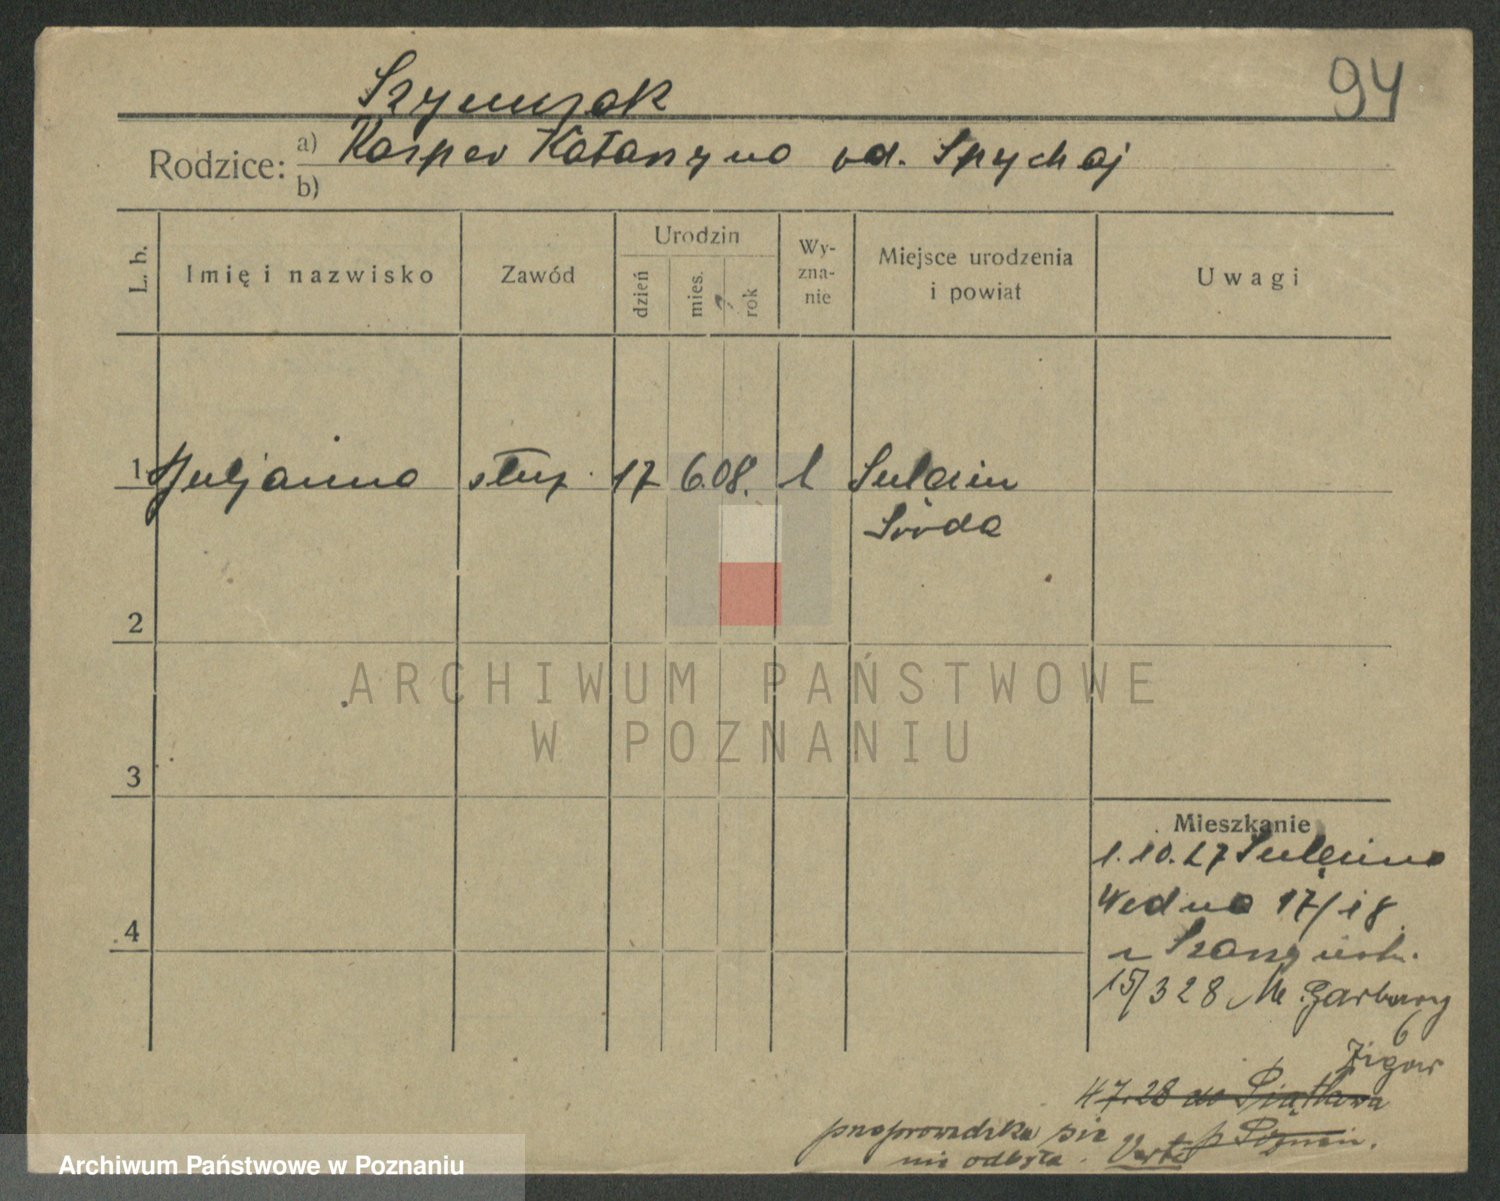 94
Szymczak
Rodzice: a) Kasper Katarzyna od. Spychaj
b)
L. b. Imię i nazwisko Zawód Urodzin dzień mies. rok Wy-zna-nie Miejsce urodzenia i powiat Uwagi
1 Juljanna służ. 17 6.08. k Sulęcin
Środa
2
ARCHIWUM PAŃSTWOWE
W POZNANIU
3
Mieszkanie
1.10.27 Sulęcina
Wodna 17/18
15/3 28 M. Garbary
6
4.7.28 do Piątkowa
p Poznań.
przeprowadzka się
nie odbyła. Verte
4
Archiwum Państwowe w Poznaniu